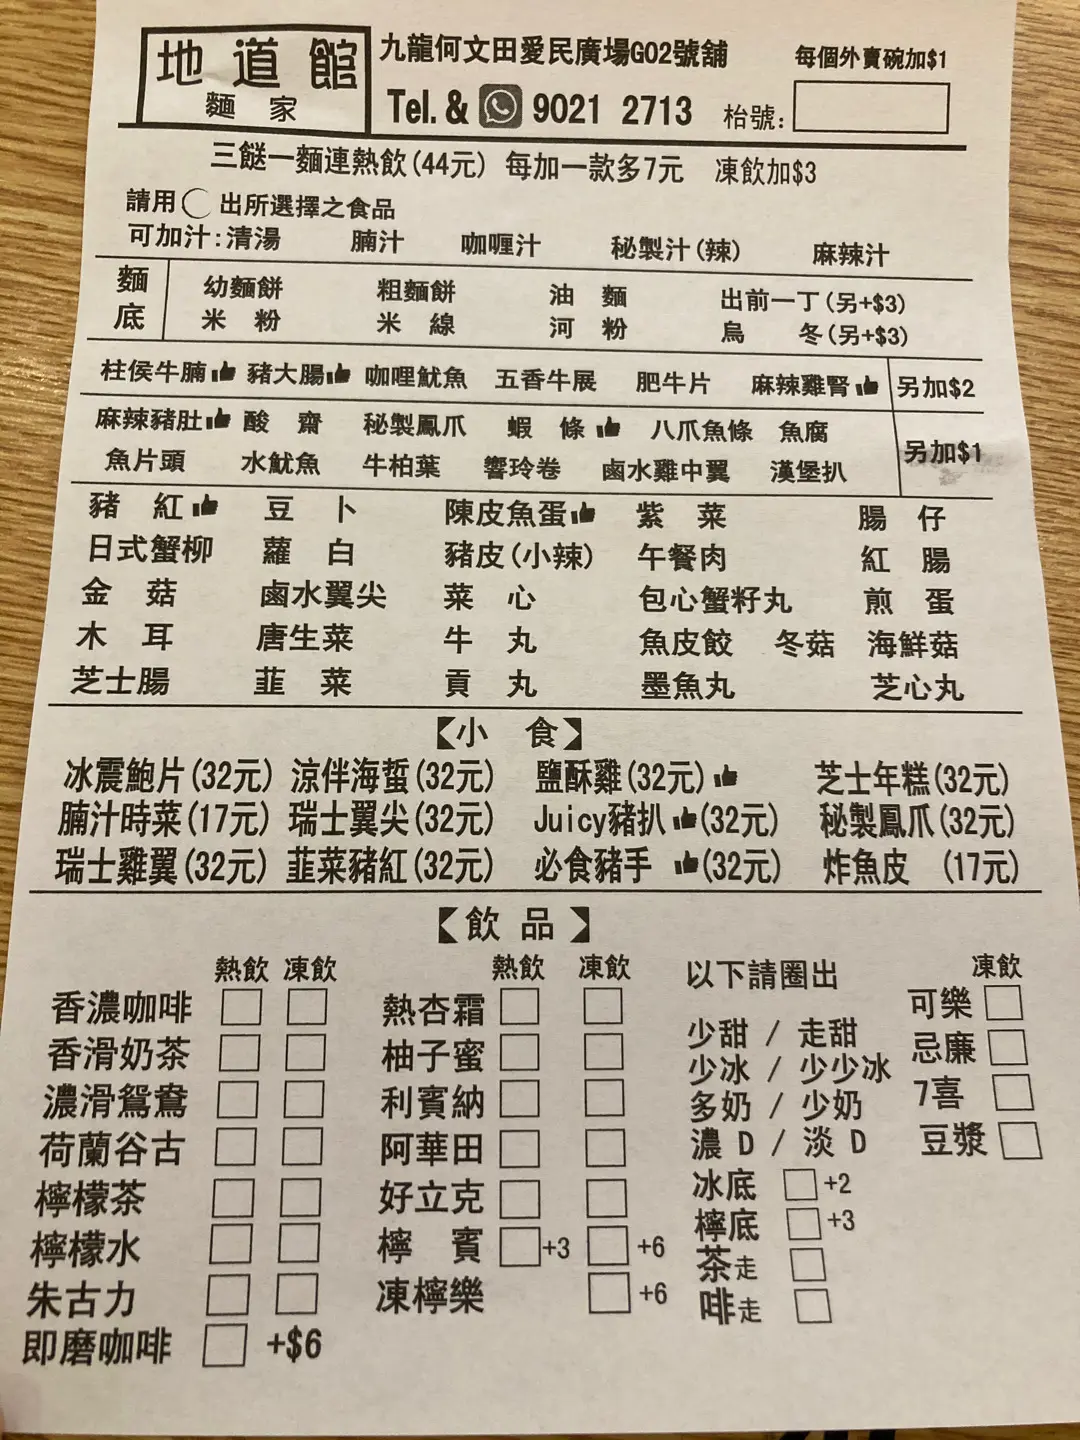 地道館
麵家
九龍何文田愛民廣場G02號舖
每個外賣碗加$1
Tel. & 9021 2713
枱號:
三餸一麵連熱飲(44元) 每加一款多7元 凍飲加$3
請用 出所選擇之食品
可加汁:清湯 腩汁 咖喱汁 秘製汁(辣) 麻辣汁
麵底
幼麵餅 粗麵餅 油麵 出前一丁(另+$3)
米粉 米線 河粉 烏冬(另+$3)
柱侯牛腩 豬大腸 咖哩魷魚 五香牛展 肥牛片 麻辣雞腎 另加$2
麻辣豬肚 酸齋 秘製鳳爪 蝦條 八爪魚條 魚腐
魚片頭 水魷魚 牛柏葉 響玲卷 鹵水雞中翼 漢堡扒
另加$1
豬紅 豆卜 陳皮魚蛋 紫菜 腸仔
日式蟹柳 蘿白 豬皮(小辣) 午餐肉 紅腸
金菇 鹵水翼尖 菜心 包心蟹籽丸 煎蛋
木耳 唐生菜 牛丸 魚皮餃 冬菇 海鮮菇
芝士腸 韮菜 貢丸 墨魚丸 芝心丸
【小食】
冰震鮑片(32元) 涼伴海蜇(32元) 鹽酥雞(32元) 芝士年糕(32元)
腩汁時菜(17元) 瑞士翼尖(32元) Juicy豬扒(32元) 秘製鳳爪(32元)
瑞士雞翼(32元) 韮菜豬紅(32元) 必食豬手(32元) 炸魚皮 (17元)
【飲品】
熱飲 凍飲
香濃咖啡
香滑奶茶
濃滑鴛鴦
荷蘭谷古
檸檬茶
檸檬水
朱古力
即磨咖啡 +$6
熱飲 凍飲
熱杏霜
柚子蜜
利賓納
阿華田
好立克
檸賓 +3 +6
凍檸樂 +6
以下請圈出
少甜 / 走甜
少冰 / 少少冰
多奶 / 少奶
濃 D / 淡 D
冰底 +2
檸底 +3
茶走
啡走
凍飲
可樂
忌廉
7喜
豆漿